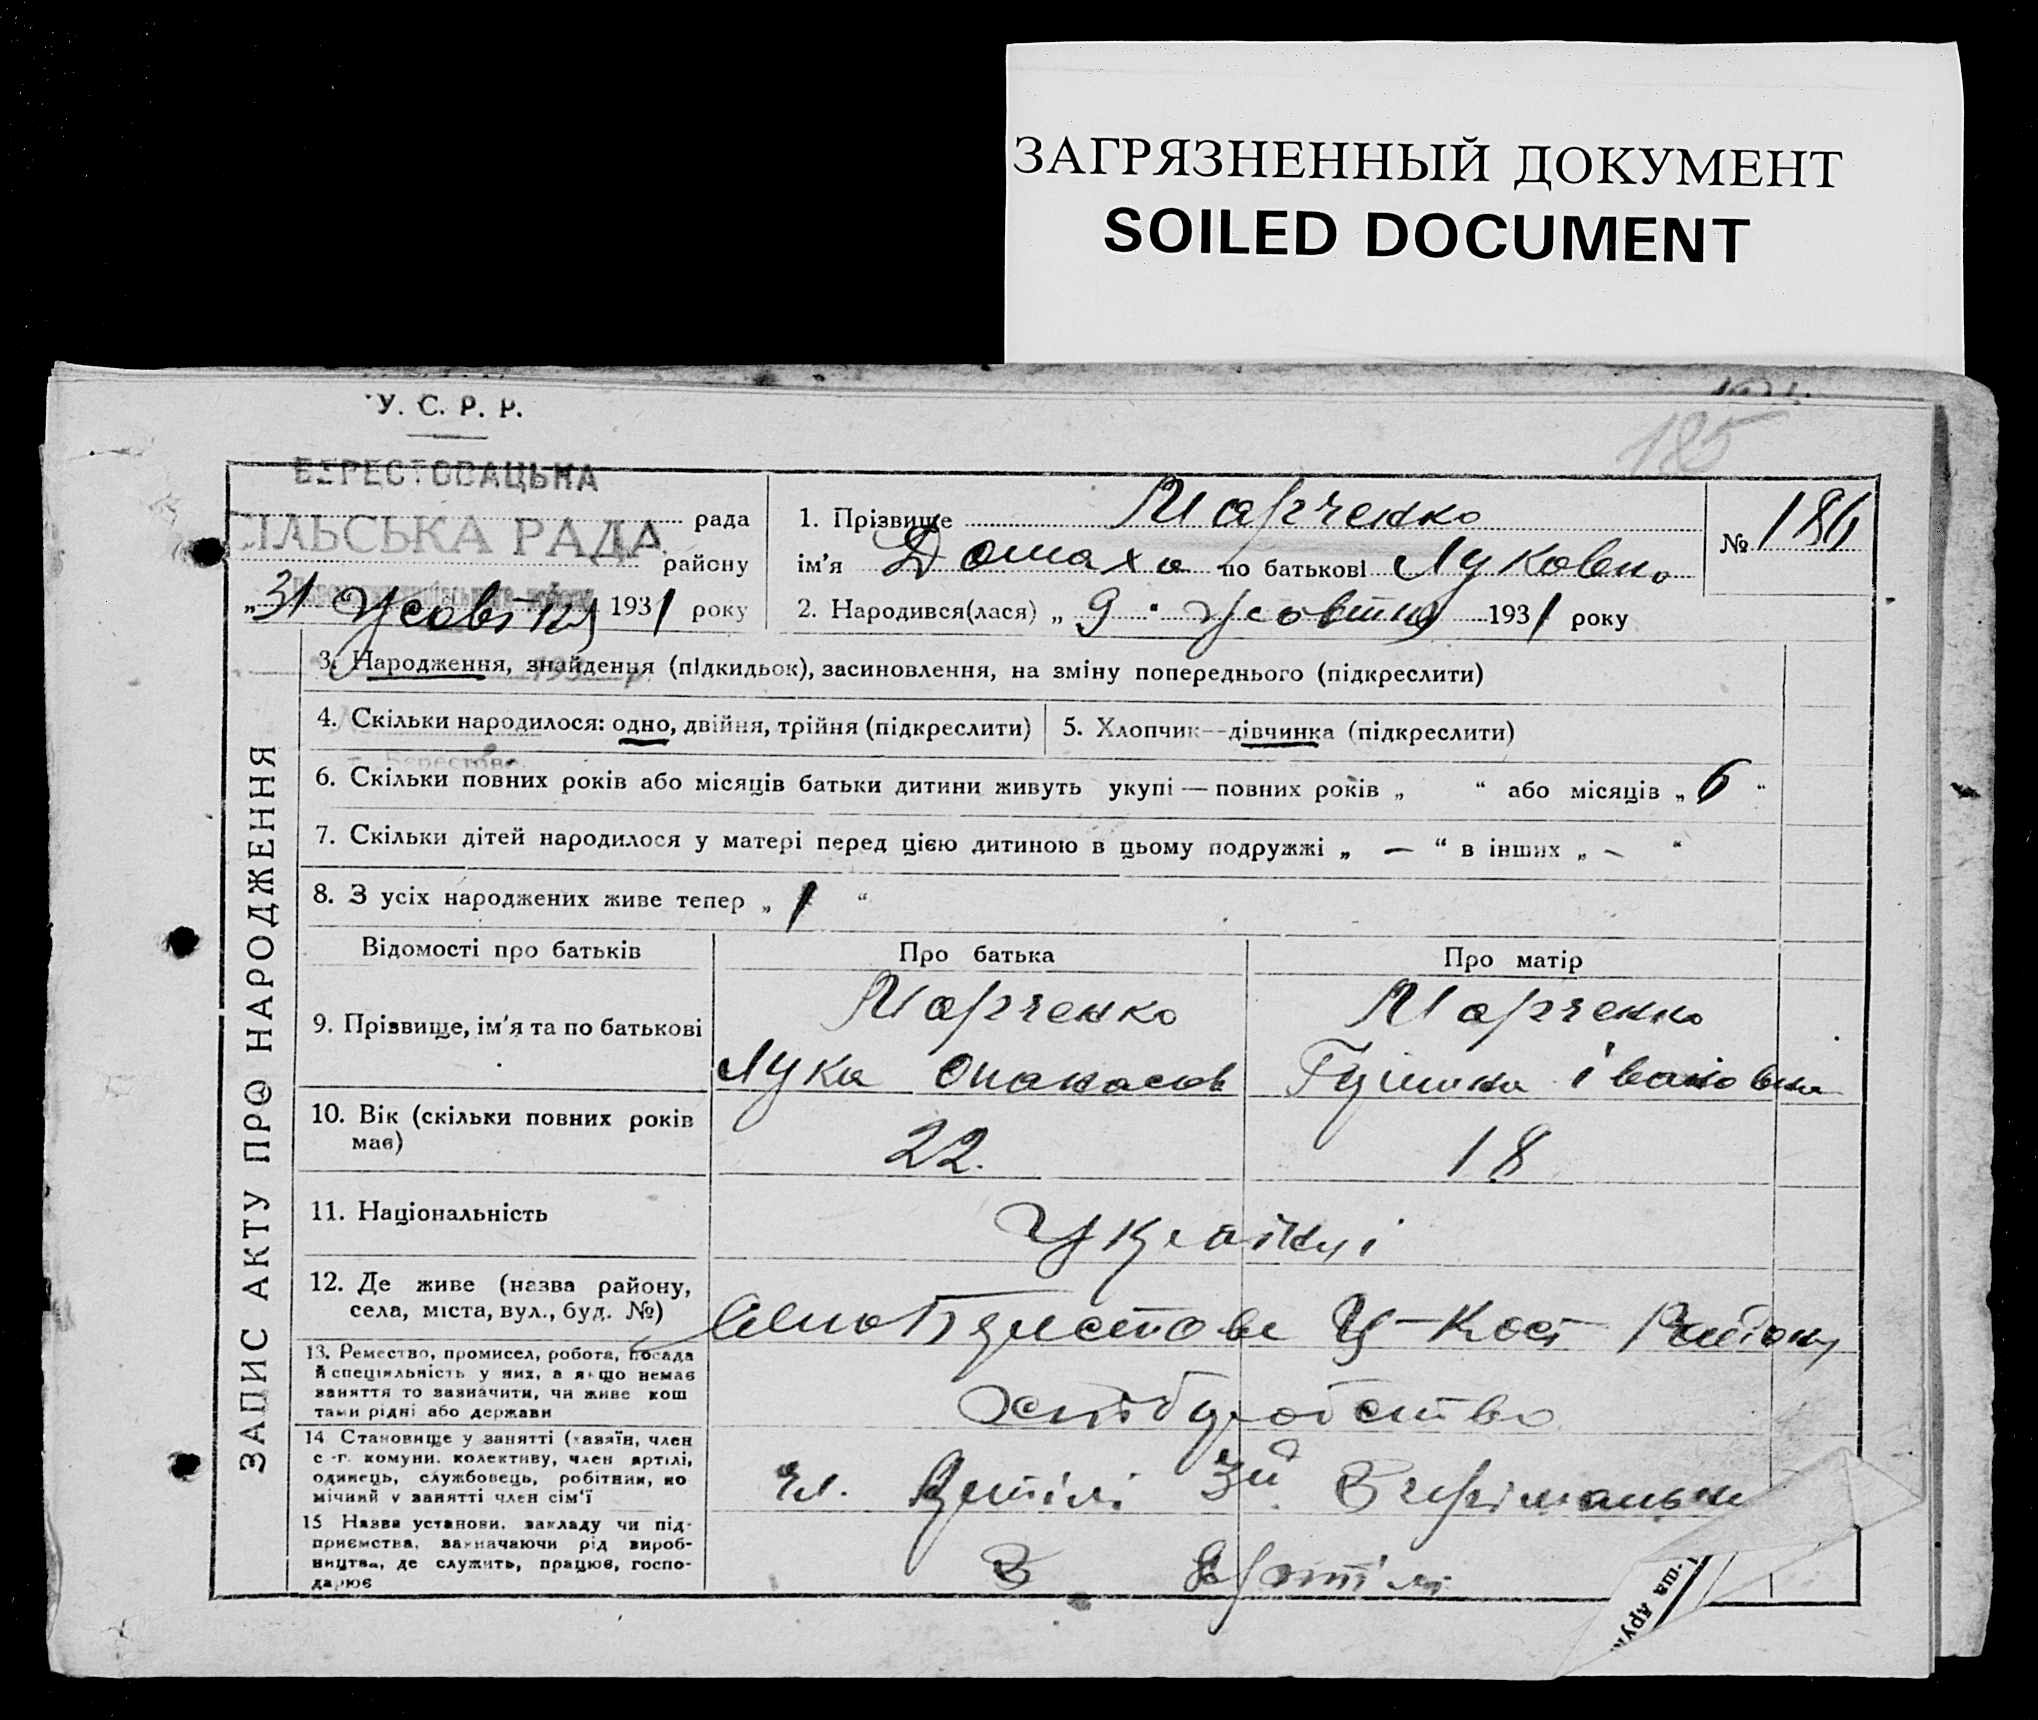 ЗАГРЯЗНЕННЫЙ ДОКУМЕНТ
SOILED DOCUMENT
У. С. Р. Р.
185
БЕРЕСТОВАЦЬКА
СІЛЬСЬКА РАДА
рада
району
„31 Жовтня 1931 року
1. Прізвище Марченко
ім'я Домаха по батькові Луковна
№ 186
2. Народився(лася) „9 Жовтня 1931 року
3. Народження, знайдення (підкидьок), засиновлення, на зміну попереднього (підкреслити)
4. Скільки народилося: одно, двійня, трійня (підкреслити)
5. Хлопчик—дівчинка (підкреслити)
6. Скільки повних років або місяців батьки дитини живуть укупі — повних років „ “ або місяців „ 6 “
7. Скільки дітей народилося у матері перед цією дитиною в цьому подружжі „ — “ в інших „ - “
8. З усіх народжених живе тепер „ 1 “
ЗАПИС АКТУ ПРО НАРОДЖЕННЯ
Відомості про батьків
Про батька
Про матір
9. Прізвище, ім'я та по батькові
Марченко
Лука Опанасов
Марченко
Івановна
10. Вік (скільки повних років
має)
22.
18
11. Національність
Українці
12. Де живе (назва району,
села, міста, вул., буд. №)
Ц-Кост Району
13. Ремество, промисел, робота, посада
й спеціяльність у них, а якщо немає
заняття то зазначити, чи живе кош
тами рідні або держави
Хліборобство
14 Становище у занятті (хазяїн, член
с.-г. комуни, колективу, член артілі,
одинець, службовець, робітник, по
мічний у занятті член сім'ї
Чл. Артілі
15 Назва установи, закладу чи під-
приємства, зазначаючи рід вироб-
ництва, де служить, працює, госпо-
дарює
В Артілі